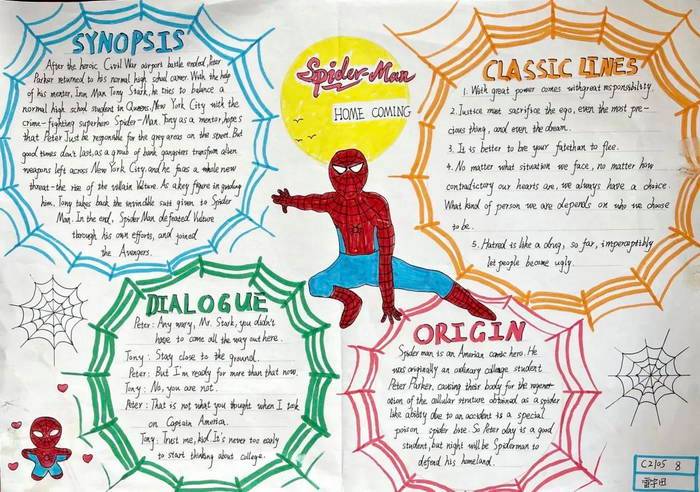 SYNOPSIS
After the heroic Civil War airport battle ended, Peter
Parker returned to his normal high school career. With the help
of his mentor, Iron Man Tony Stark, he tries to balance a
normal high school student in Queens, New York City with the
crime-fighting superhero Spider-Man. Tony as a mentor, hopes
that Peter Just be responsible for the grey areas on the street. But
good times don't last, as a group of bank gangsters transform alien
weapons left across New York City, and he faces a whole new
threat - the rise of the villain Vulture. As a key figure in guiding
him, Tony takes back the invincible suit given to Spider
Man. In the end, Spider Man defeated Vulture
through his own efforts, and joined
the Avengers.
Spider-Man
HOME COMING
CLASSIC LINES
1. With great power comes with great responsibility.
2. Justice must sacrifice the ego, even the most pre-
cious thing, and even the dream.
3. It is better to bre your fate than to flee.
4. No matter what situation we face, no matter how
contradictory our hearts are, we always have a choice.
What kind of person we are depends on who we choose
to be.
5. Hatred is like a drug, so far, imperceptibly
let people become ugly.
DIALOGUE
Peter: Any way, Mr. Stark, you didn't
have to come all the way out here.
Tony: Stay close to the ground.
Peter: But I'm ready for more than that now.
Tony: No, you are not.
Peter: That is not what you thought when I took
on Captain America.
Tony: Trust me, kid. It's never too early
to start thinking about college.
ORIGIN
Spider man is an American comic hero. He
was originally an ordinary colleage student
Peter Parker, causing their body for the regener
ation of the cellular structure obtained as a spider
like ability due to an accident is a special
poison spider bite. So Peter olay is a good
student, but night will be Spiderman to
defend his homeland.
C2105 8